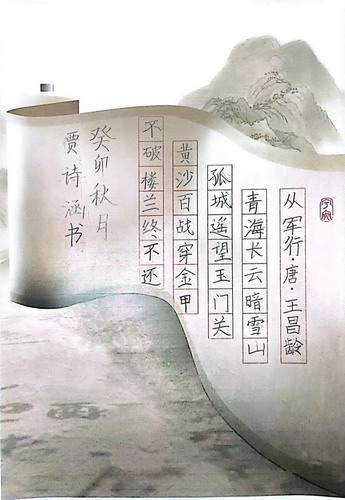 从军行·唐·王昌龄
青海长云暗雪山
孤城遥望玉门关
黄沙百战穿金甲
不破楼兰终不还
癸卯秋月
贾诗涵书